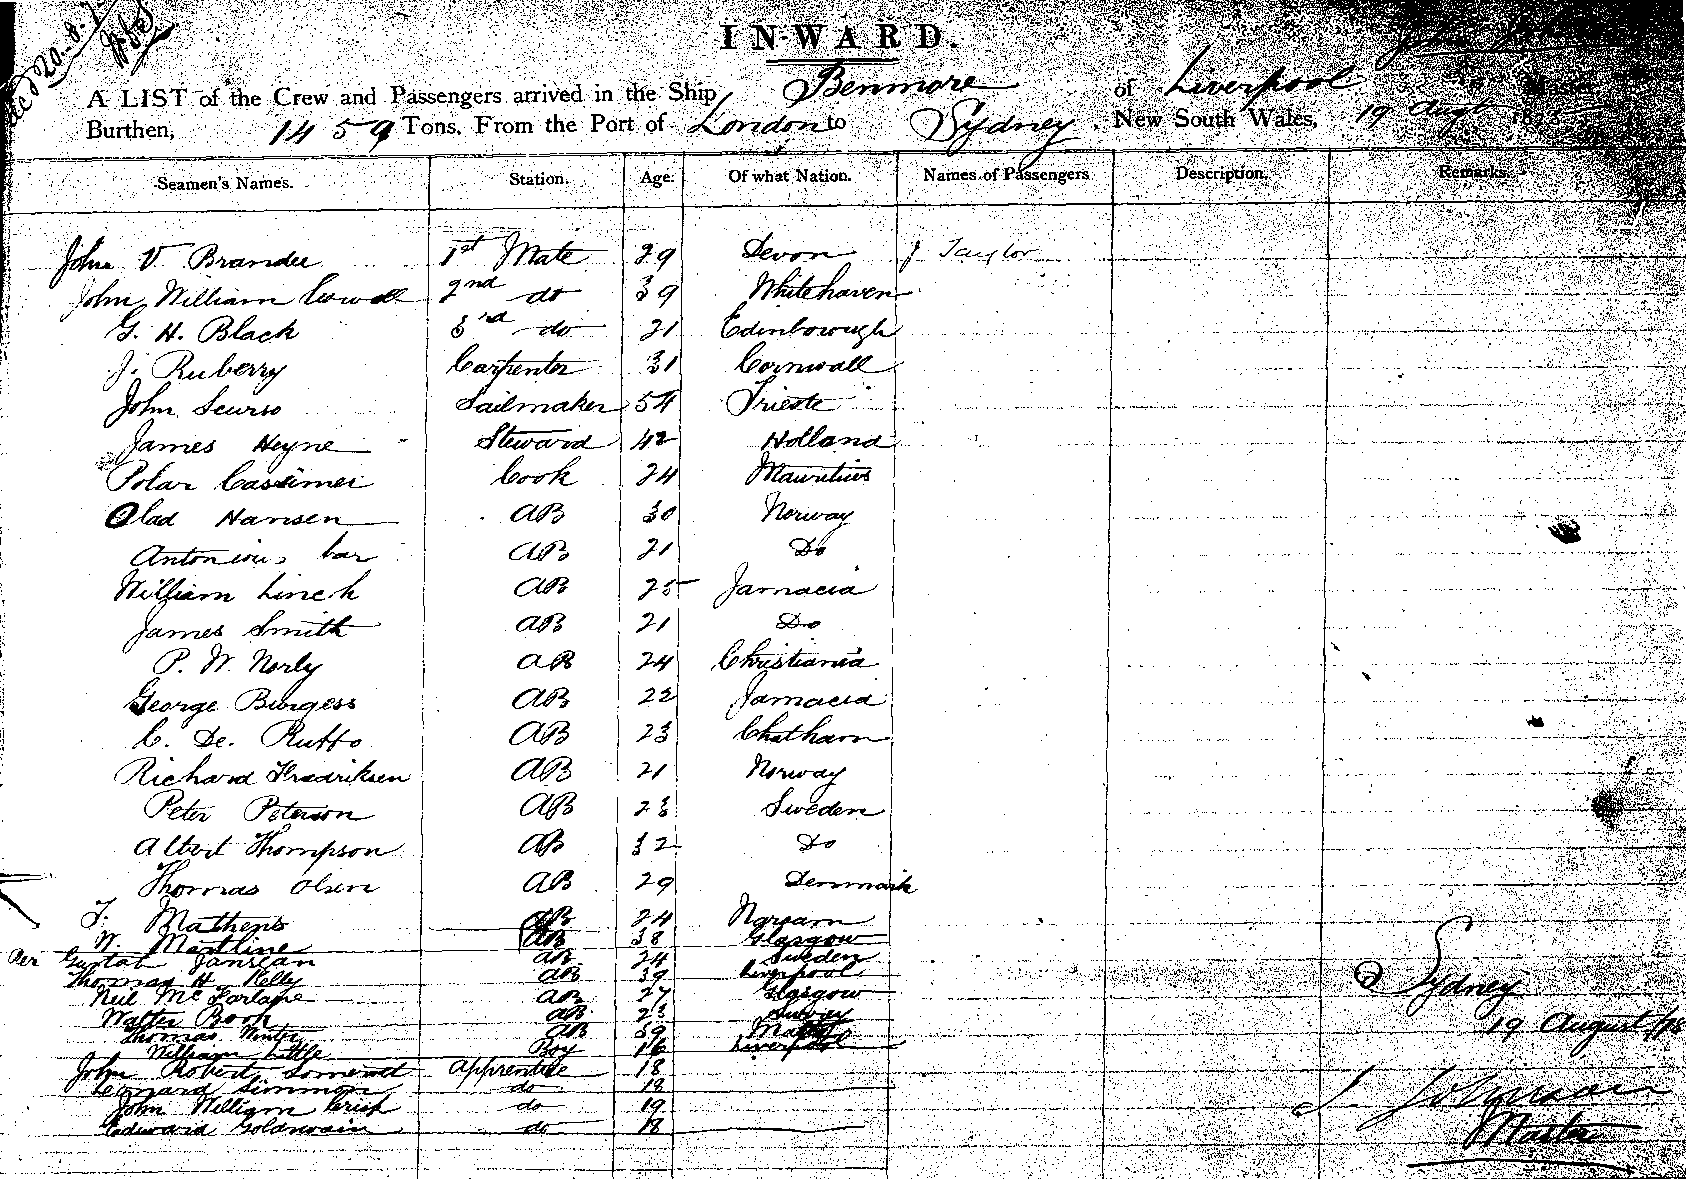 INWARD.
A LIST of the Crew and Passengers arrived in the Ship Benmore of Liverpool
Burthen, 1459 Tons. From the Port of London to Sydney. New South Wales, 19 Augt
Seamen's Names. Station. Age. Of what Nation. Names of Passengers Description. Remarks.
John V. Brander 1st Mate 29 Devon J Taylor
John William 2nd do 39 Whitehaven
G. H. Black 3rd do 21 Edinborough
J. Ruberry Carpenter 31 Cornwall
John Scurso Sailmaker 54 Trieste
James Heyne Steward 42 Holland
Polar Cassimer Cook 24 Mauritius
Olad Hansen AB 30 Norway
AB 21 Do
William Linch AB 25 Jamacia
James Smith AB 21 Do
P. W. Norly AB 24 Christiania
George Burgess AB 22 Jamacia
C. De. Rutto AB 23 Chatham
Richard Fredriksen AB 21 Norway
Peter Peterson AB 23 Sweden
Albert Thompson AB 32 Do
Thomas Olsen AB 29 Denmark
T. Mathews AB 24
W. Mastline AB 38 Glasgow
Gustab Janslan AB 24 Sweden
Thomas H. Kelly AB 39 Liverpool
Neil McFarlane AB 27 Glasgow
Walter Book AB 23 Surrey
Thomas AB 39
William Little Boy 16 Liverpool
John Robert Somerset apprentice 18
Leonard Simmon do 18
John William do 19
Edward Goldwain do 18
Sydney
19 August/78
J Johnson
Master